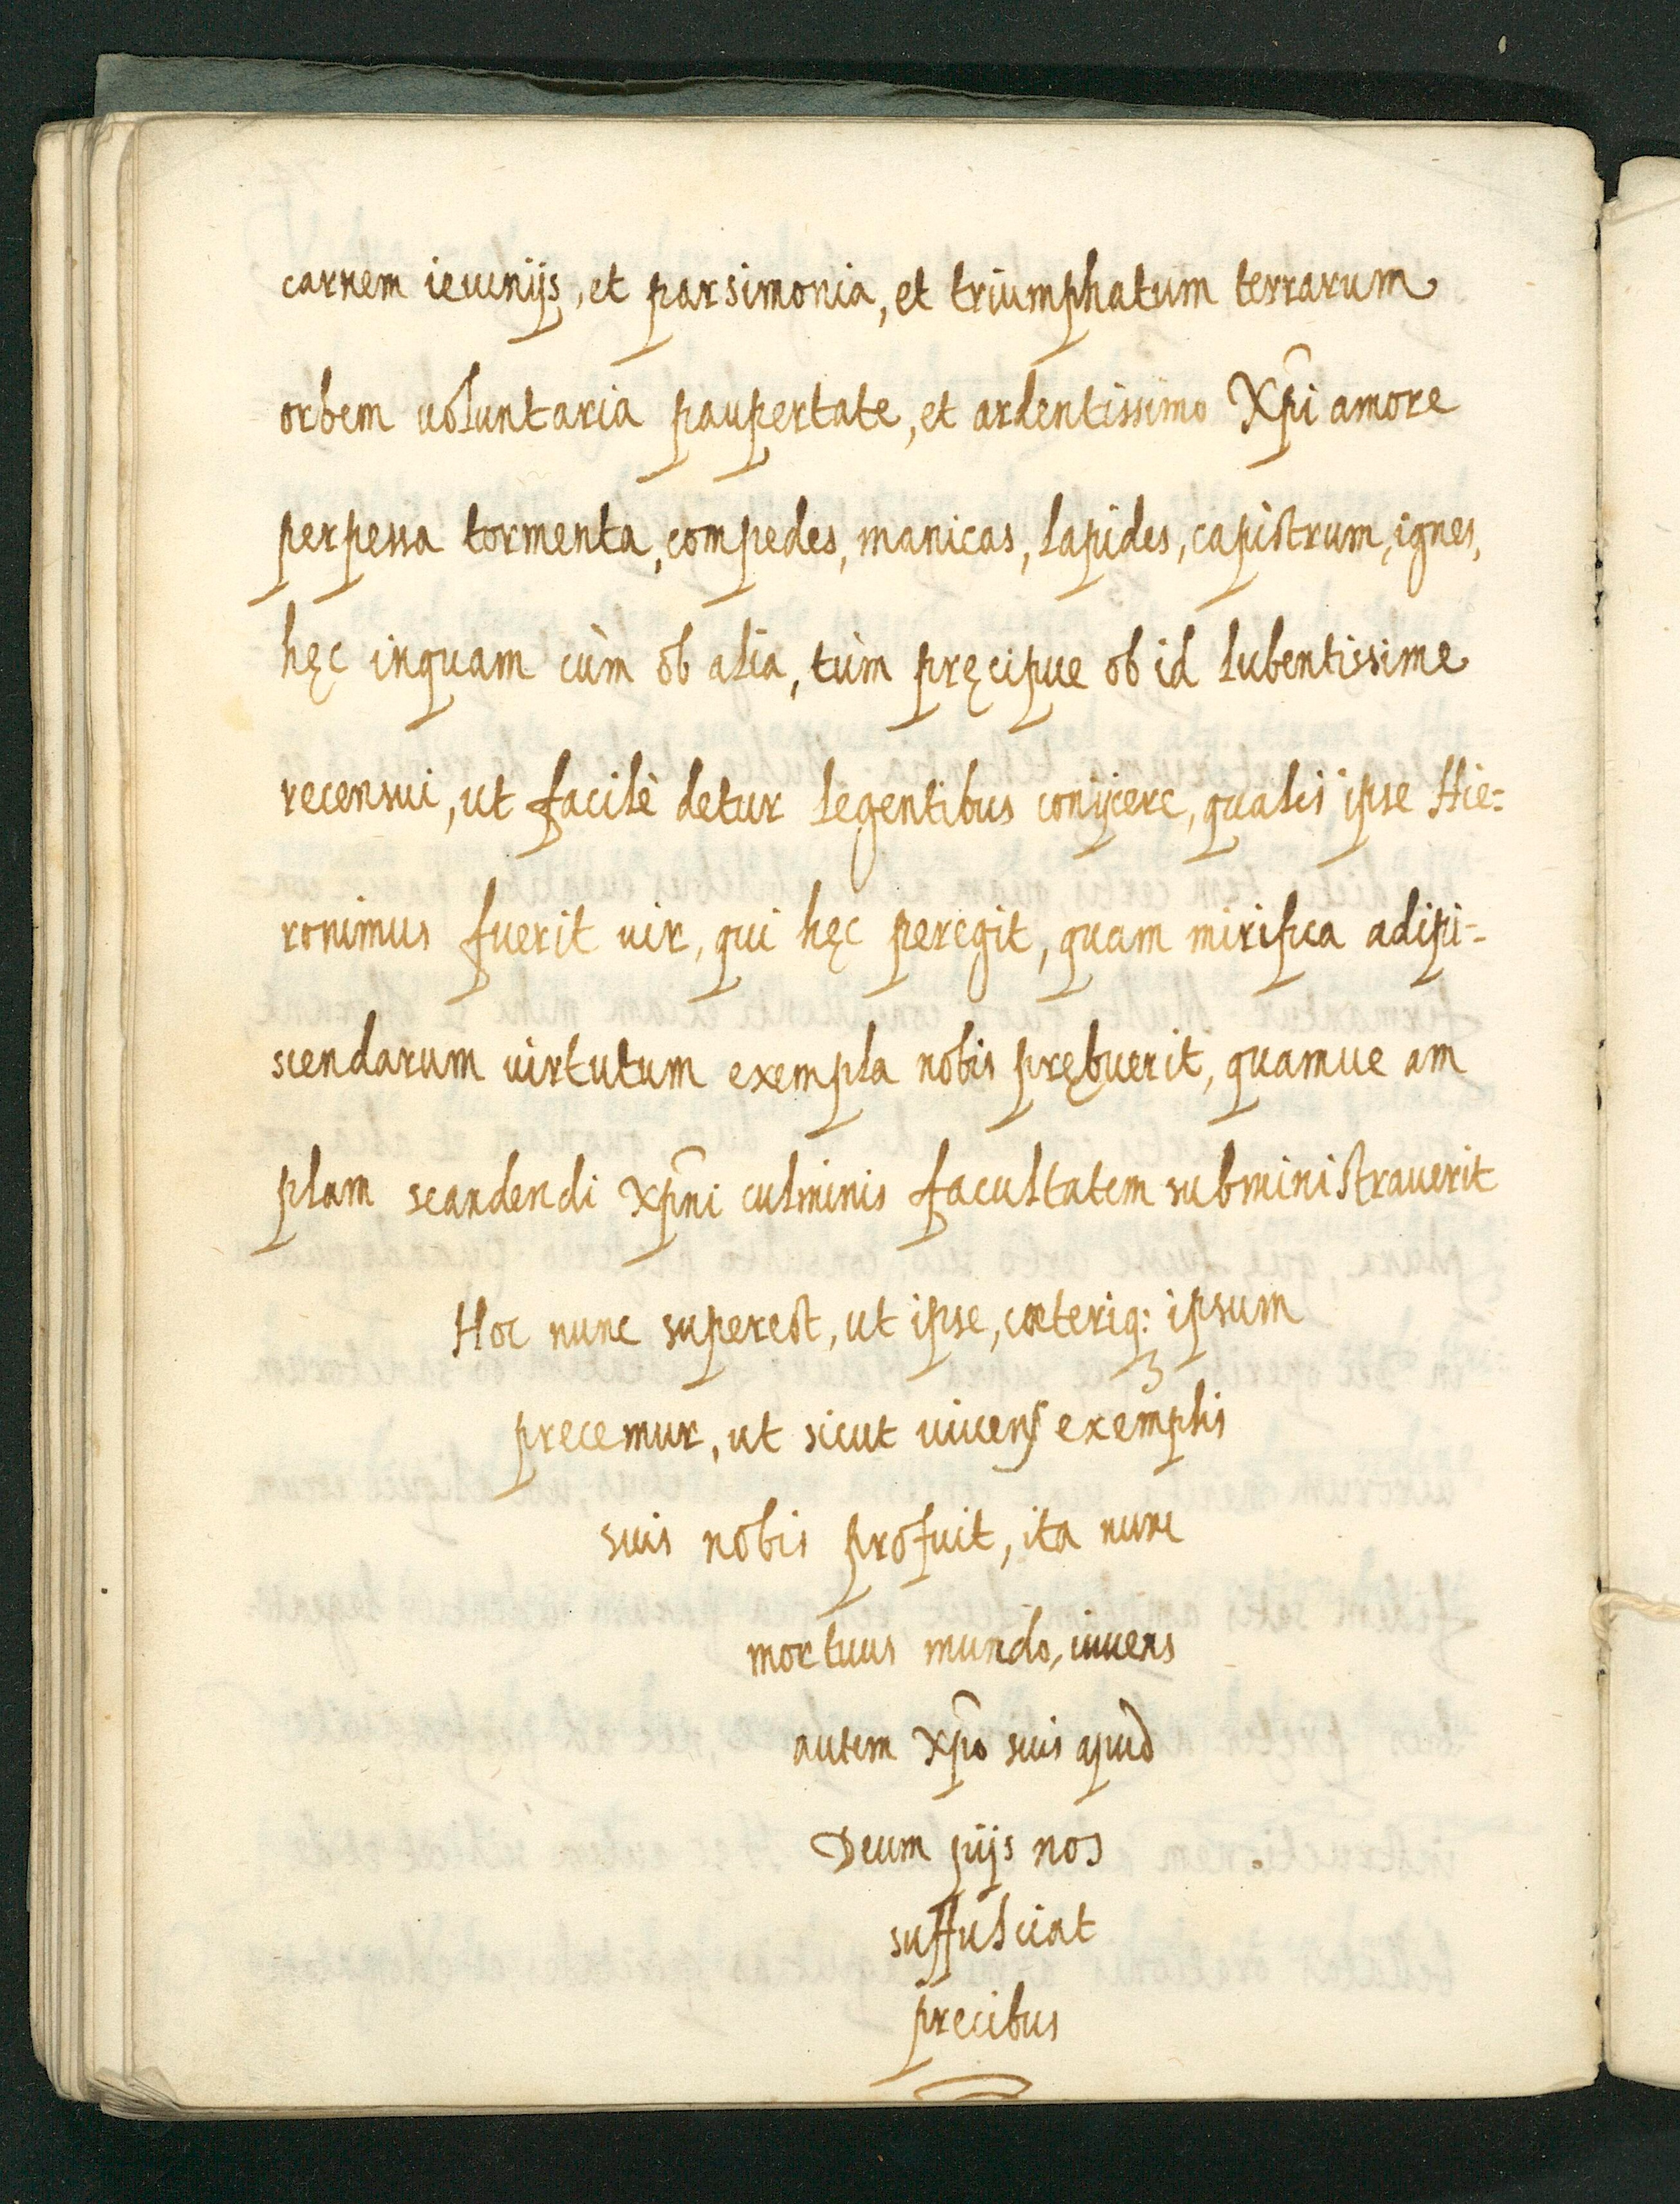 carnem ieiunijs, et parsimonia, et triumphatum terrarum
orbem uoluntaria paupertate, et ardentissimo Xp̃i amore
perpessa tormenta, compedes, manicas, lapides, capistrum, ignes,
hęc inquam cùm ob alia, tùm pręcipue ob id lubentissime
recensui, ut facilè detur legentibus conijcere, qualis ipse Hie=
ronimus fuerit uir, qui hęc peregit, quam mirifica adipi=
scendarum uirtutum exempla nobis prębuerit, quamue am
plam scandendi xp̃ni culminis facultatem subministrauerit
Hoc nunc superest, ut ipse, cæteriq: ipsum
precemur, ut sicut uiuens exemplis
suis nobis profuit, ita nunc
mortuus mundo, uiuens
autem xp̃o suis apud
Deum pijs nos
suffulciat
precibus